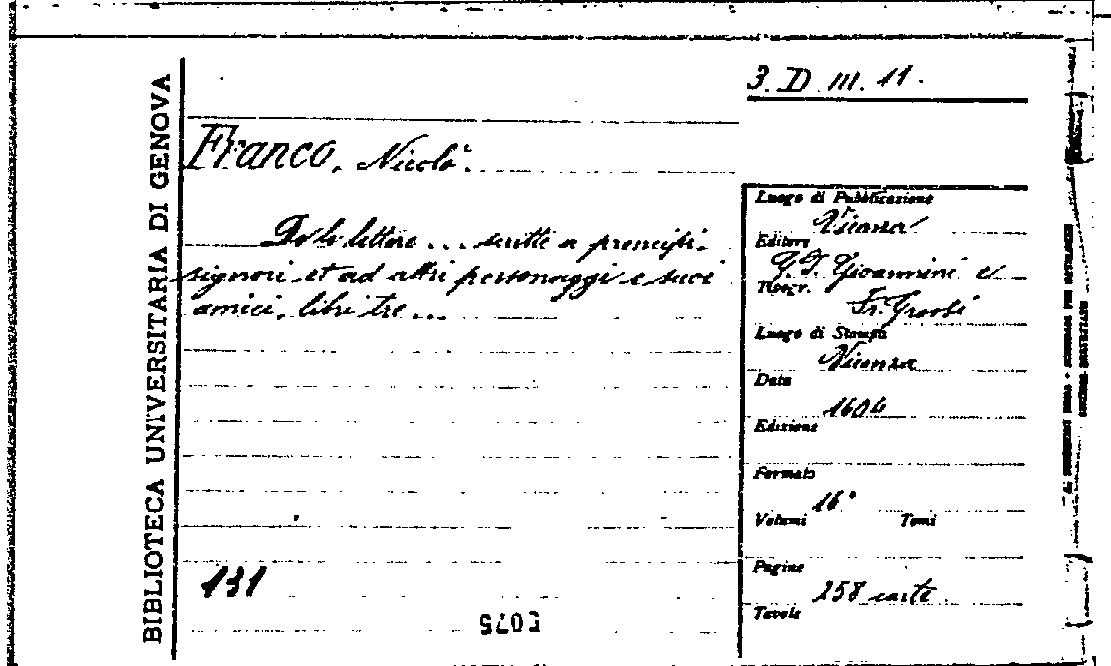 3. D. III. 11.
BIBLIOTECA UNIVERSITARIA DI GENOVA
Franco, Nicolò.
De le lettere... scritte a prencipi.
signori et ad altri personaggi e suoi
amici, libri tre...
131
Luogo di Pubblicazione
Vicenza
Editore
G. D. Gioannini e
Tipogr.
Fr. Grossi
Luogo di Stampa
Vicenza
Data
1604
Edizione
Formato
16°
Volumi Tomi
Pagine
258 carte
Tavole